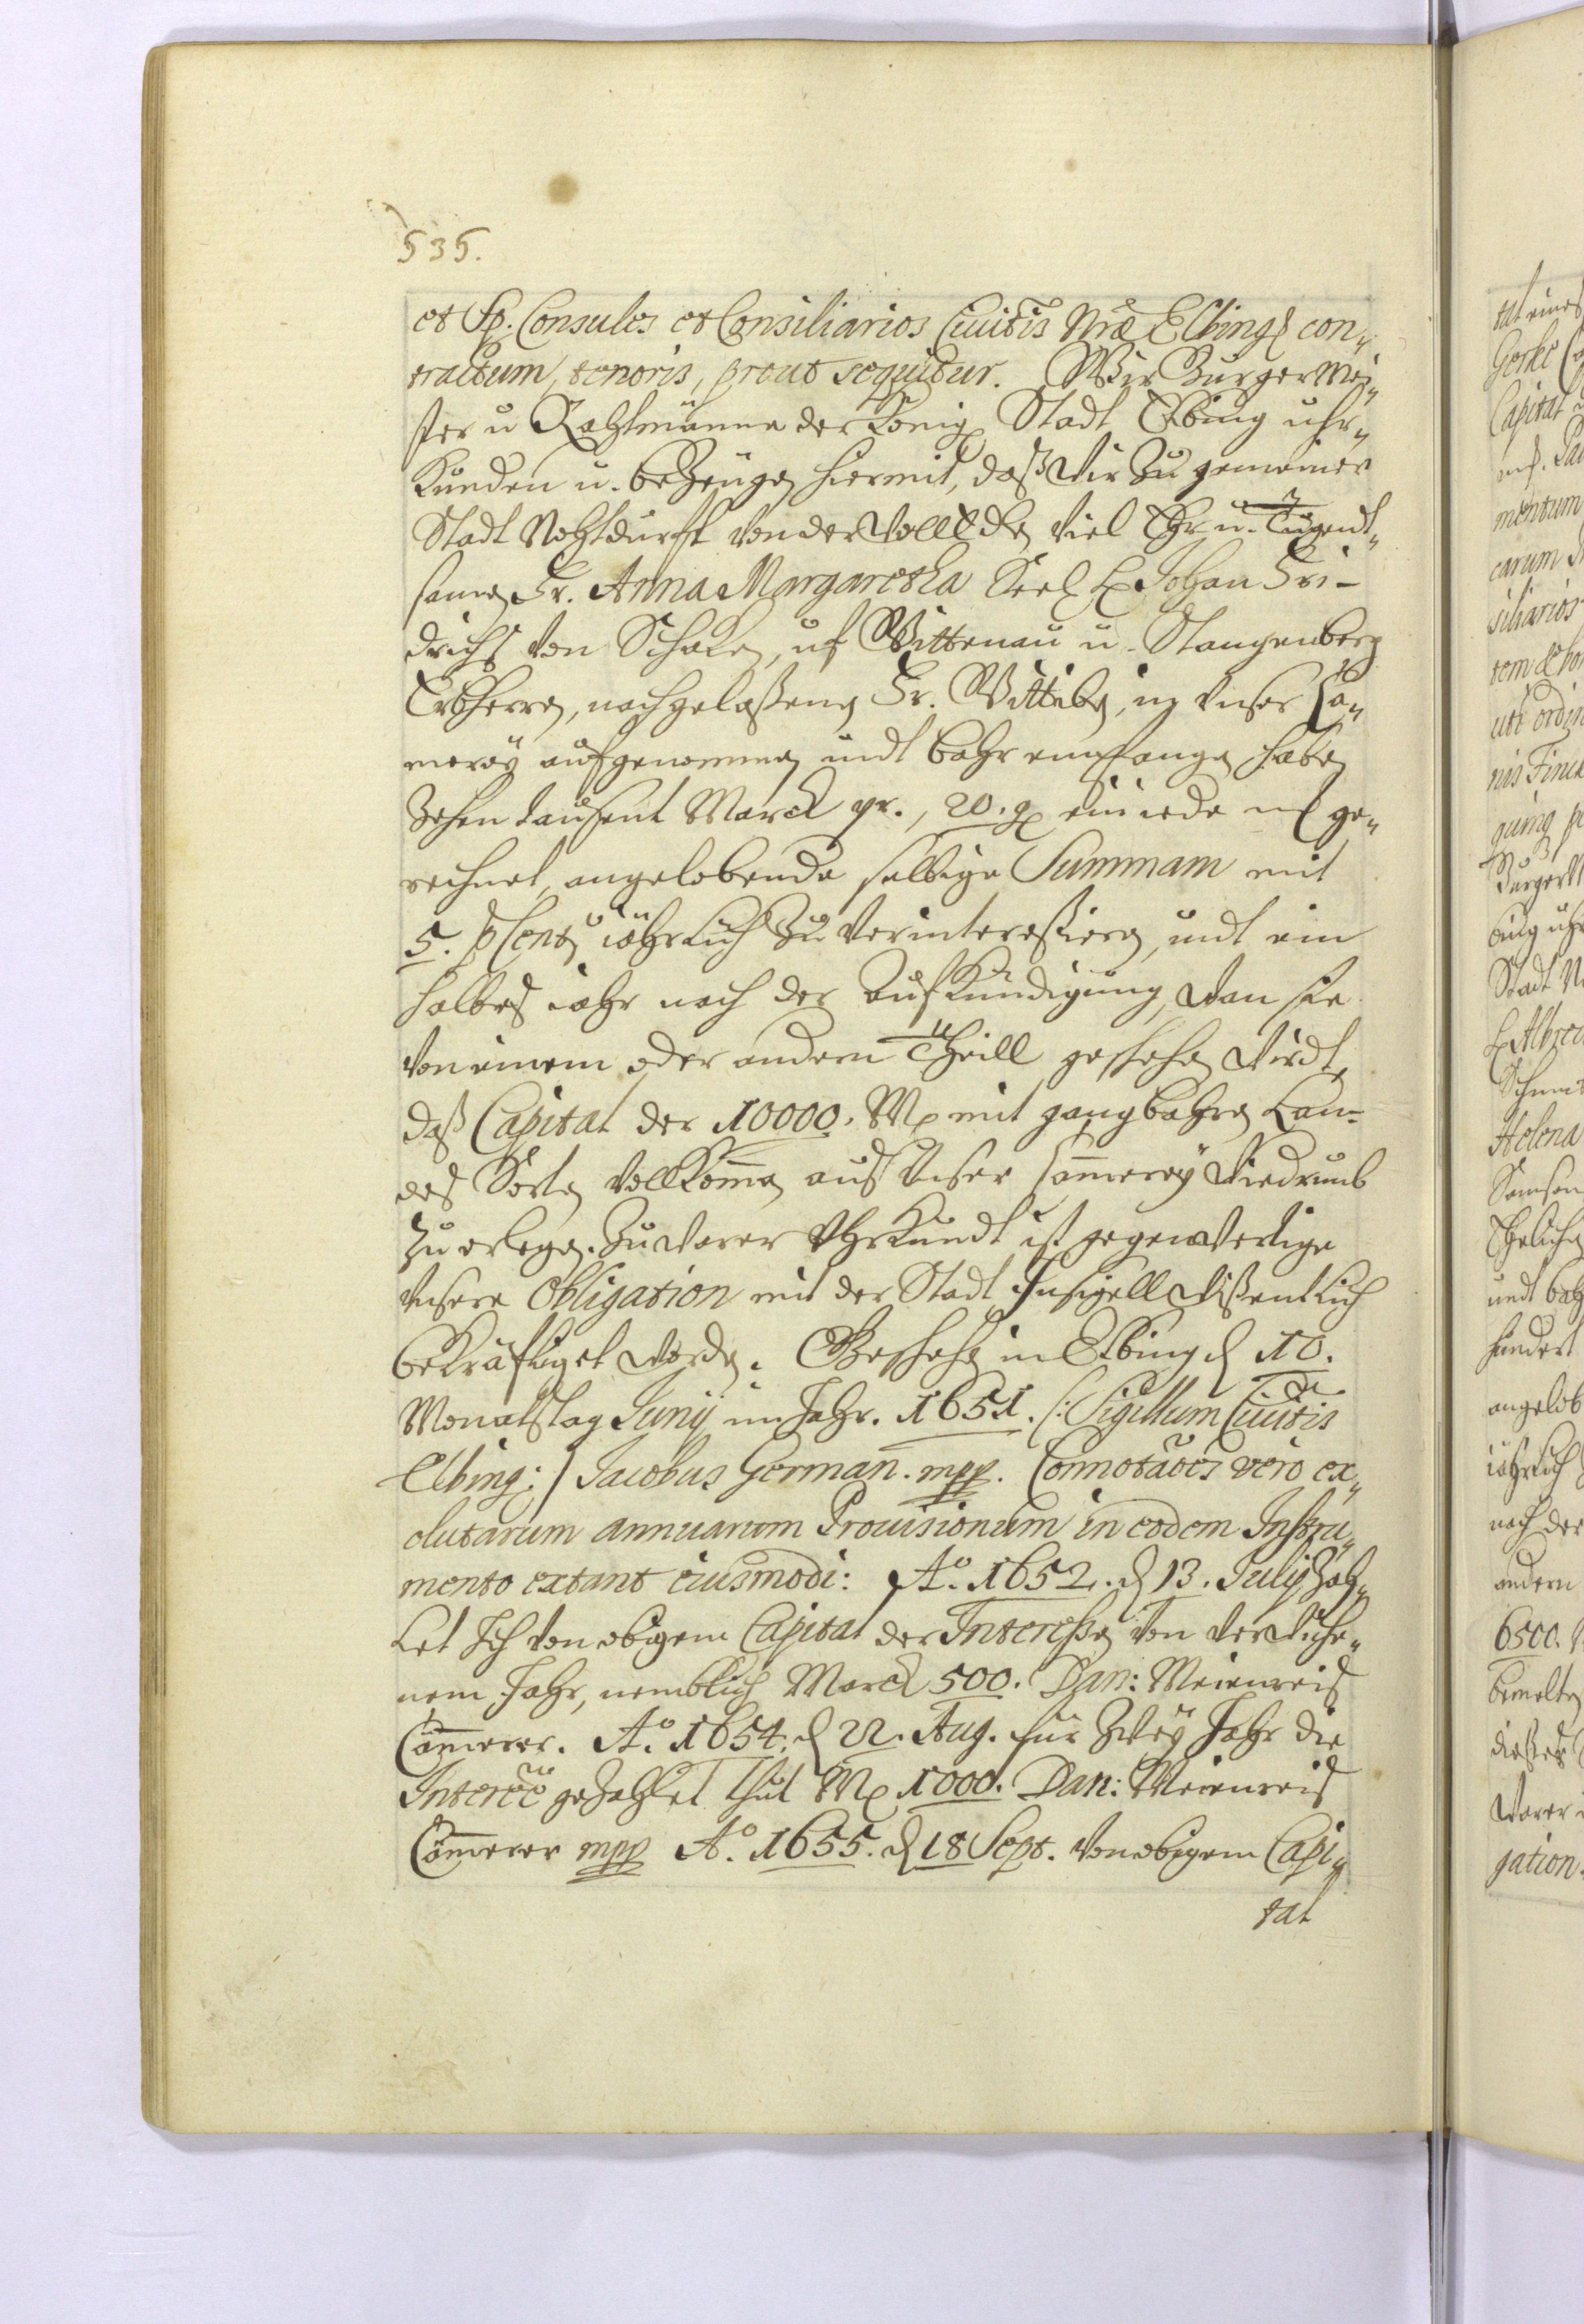 535.
et Sp. Consules et Consiliarios Ciuitis Nræ Elbing con„
tractum, tenoris, prout sequitur. Wir BurgerMei„
ster u Rahtmänne der Königl Stadt Elbing uhr„
kunden u. bezeugen hiermit, daß Wir zu gemeiner
Stadt Nohtdurfft von der WollEdlen Viel Ehr u. Tugendt„
samen Fr. Anna Margaretha Seel H Johan Fri-
drichs von Schaken, uf Wittenau u. Stangenberg
Erbherren, nachgelaßenen Fr. Wittiben, in Unser Cä„
merey aufgenommen undt bahr empfangen haben
Zehen tausent Marck pr., 20. g ein iede ml ge„
rechnet, angelobende selbige Summam mit
5. p Cento iährlich zu verinteressieren, undt ein
halbes iahr nach der Aufkündigung, wan sie
von einem oder andern Theill geschehen wirdt,
daß Capital der 10000. M mit gangbahren Lan-
des Sorten vollkommen aus Unser Cammerey Wiedrumb
zu erlegen. Zu warer Uhrkundt ist gegenwertige
Unsere Obligation mit der Stadt Insigell Wißentlich
bekräftiget worden. Geschehen in Elbing d 10.
Monatstag Junij im Jahr. 1651. /: Sigillum Ciuitis
Elbing: / Jacobus German. mpp. Connotaões vero ex„
olutarum annuarum Prouisionum in eodem Instru„
mento extant eiusmodi: Ao. 1652. d 13. Julij Zah„
let Ich von obigem Capital der Interessen von verwiche„
nem Jahr, nemblich Marck 500. Dan: Meienreis
Cammerer. Ao. 1654. d 22. Aug. für Zwey Jahr die
Intereße gezahlet thut M 1000. Dan: Meienreis
Cammerer mpp Ao. 1655. d 18 Sept. von obigem Capi„
tal